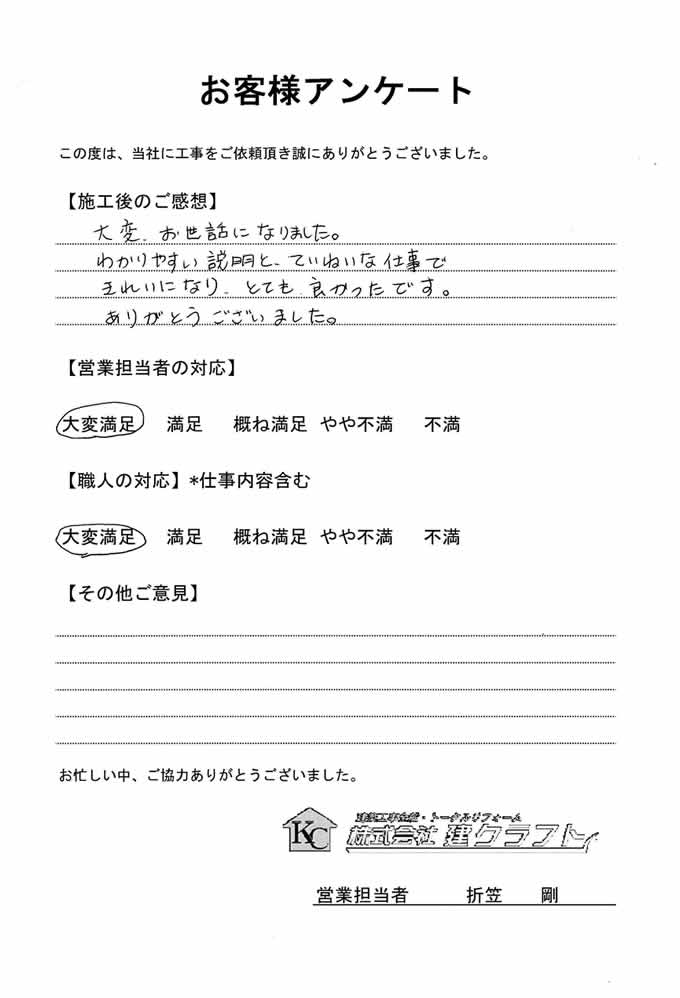 お客様アンケート
この度は、当社に工事をご依頼頂き誠にありがとうございました。
【施工後のご感想】
大変、お世話になりました。
わかりやすい説明と、ていねいな仕事で
きれいになり、とても良かったです。
ありがとうございました。
【営業担当者の対応】
大変満足 満足 概ね満足 やや不満 不満
【職人の対応】*仕事内容含む
大変満足 満足 概ね満足 やや不満 不満
【その他ご意見】
お忙しい中、ご協力ありがとうございました。
KC
建築工事全般・トータルリフォーム
株式会社 建クラフト
営業担当者 折笠 剛